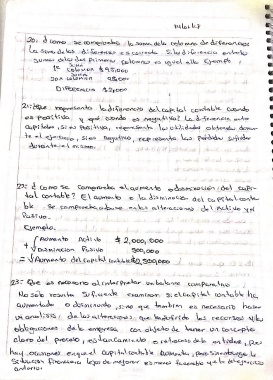 20.- ¿Como se comprueba la suma dela columna de diferencias
La suma delas diferencias es correcta si la diferencia entre la
suma delas dos primeras columnas es igual ella Ejemplo
SUMA
1ª columna $ 95,000
SUMA
2da columna 93,000
DIFERENCIA $ 2,000
21.- ¿Que representa la diferencia del capital contable cuando
es positiva y que cuando es negativa? La diferencia entre
capitales, si es positiva, representa la utilidad obtenida duran
te el ejercicio, si es negativa, representa las perdidas sufridas
durante el mismo.
22.- ¿Como se comprueba el aumento o disminucion del capi-
tal contable? El aumento o la disminucion del capital conta
ble se comprueba sobre estas alteraciones del Activo y el
Pasivo.
Ejemplo.
Aumento Activo $ 2,000,000
+ Disminucion Pasivo 500,000
= Aumento del capital contable $2,500,000
23.- Que es necesario al interpretar un balance comparativo
No solo resulta suficiente examinar si el capital contable ha
aumentado o disminuido, sino que tambien es necesario hacer
un analisis de las alteraciones que han sufrido los recursos y las
obligaciones de la empresa con objeto de tener un concepto
claro del proceso, estancamiento o retroceso de la entidad, Pues
hay ocasiones en que el capital contable Aumenta, pero sin embargo la
Situacion financiera lejos de mejorar es menos favorable que la del ejercicio
anterior